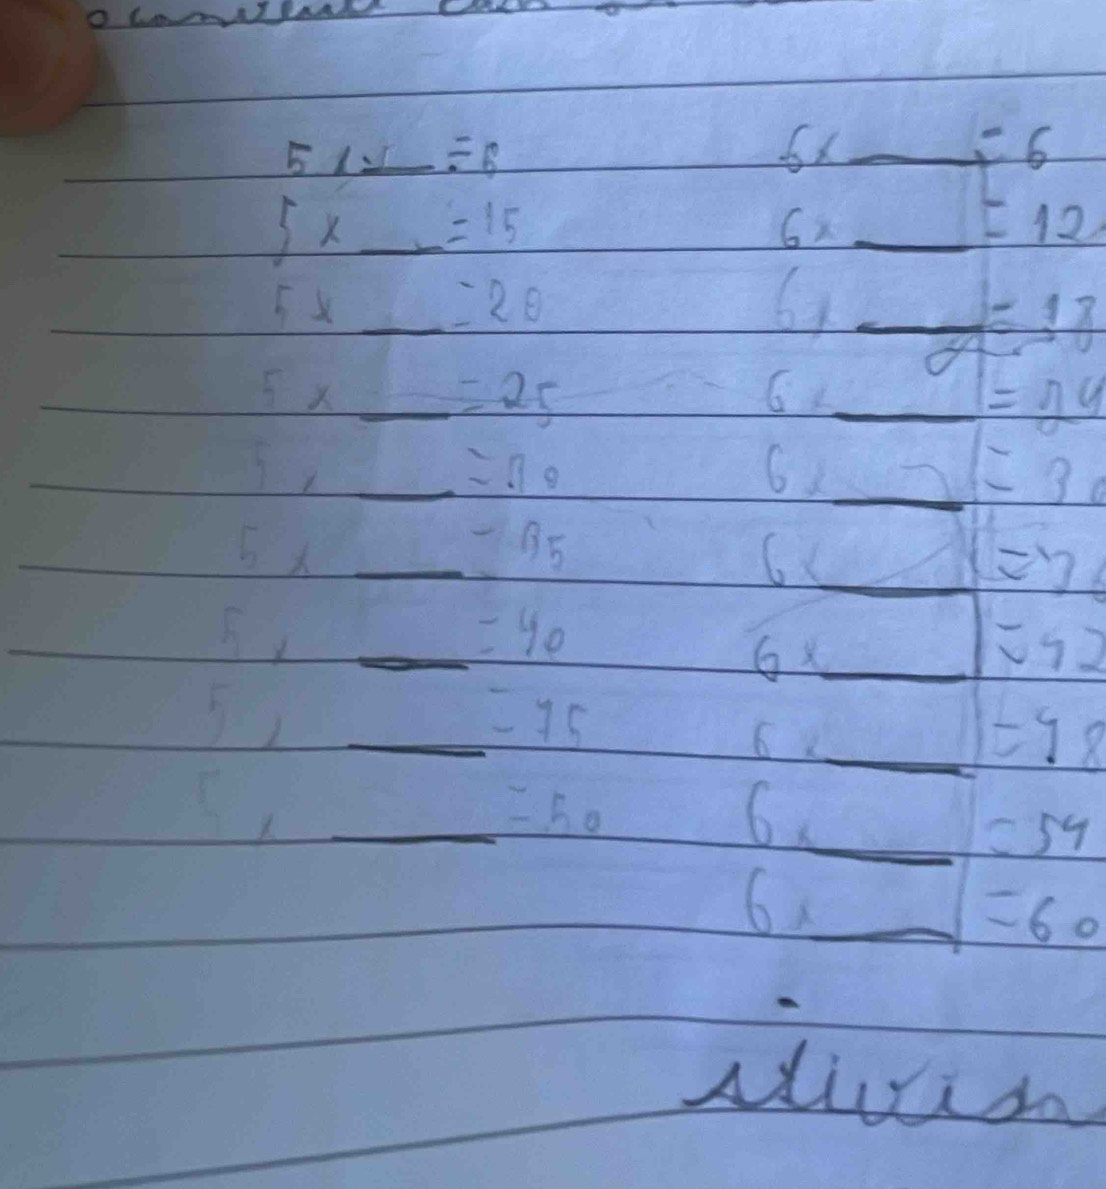 5 x ___ = 15 6 x ___ = 12
5 x ___ = 20 6 x ___ = 18
5 x ___ = 25 6 x ___ = 24
5 x ___ = 30 6 x ___ = 30
5 x ___ = 35 6 x ___ = 36
5 x ___ = 40 6 x ___ = 42
5 x ___ = 45 6 x ___ = 48
5 x ___ = 50 6 x ___ = 54
6 x ___ = 60